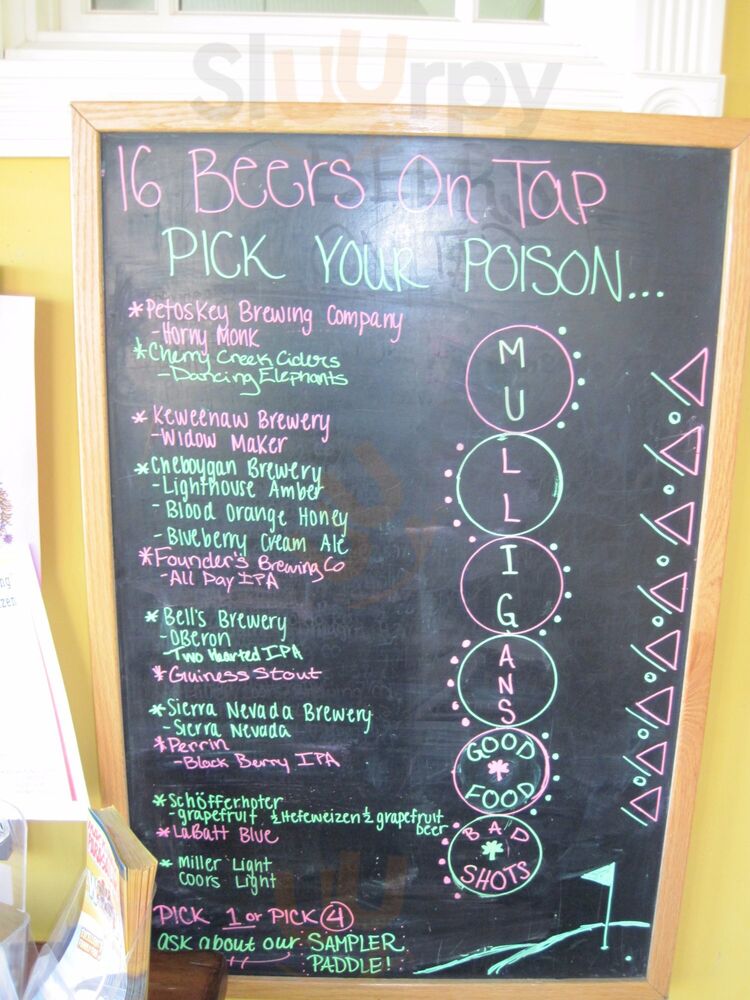 Sluurpy
16 Beers On Tap
PICK YOUR POISON...
*Petoskey Brewing Company
-Horny Monk
*Cherry Creek Ciders
-Dancing Elephants
*Keweenaw Brewery
-Widow Maker
*Cheboygan Brewery
-Lighthouse Amber
-Blood Orange Honey
-Blueberry Cream Ale
*Founder's Brewing Co
-All Day IPA
*Bell's Brewery
-OBeron
-Two Hearted IPA
*Guiness Stout
*Sierra Nevada Brewery
-Sierra Nevada
*Perrin
-Black Berry IPA
*Schöfferhofer
-grapefruit ½ Hefeweizen ½ grapefruit
beer
*LaBatt Blue
*Miller Light
Coors Light
PICK 1 or PICK 4
ask about our SAMPLER
PADDLE!
MULLIGANS
GOOD
FOOD
BAD
SHOTS